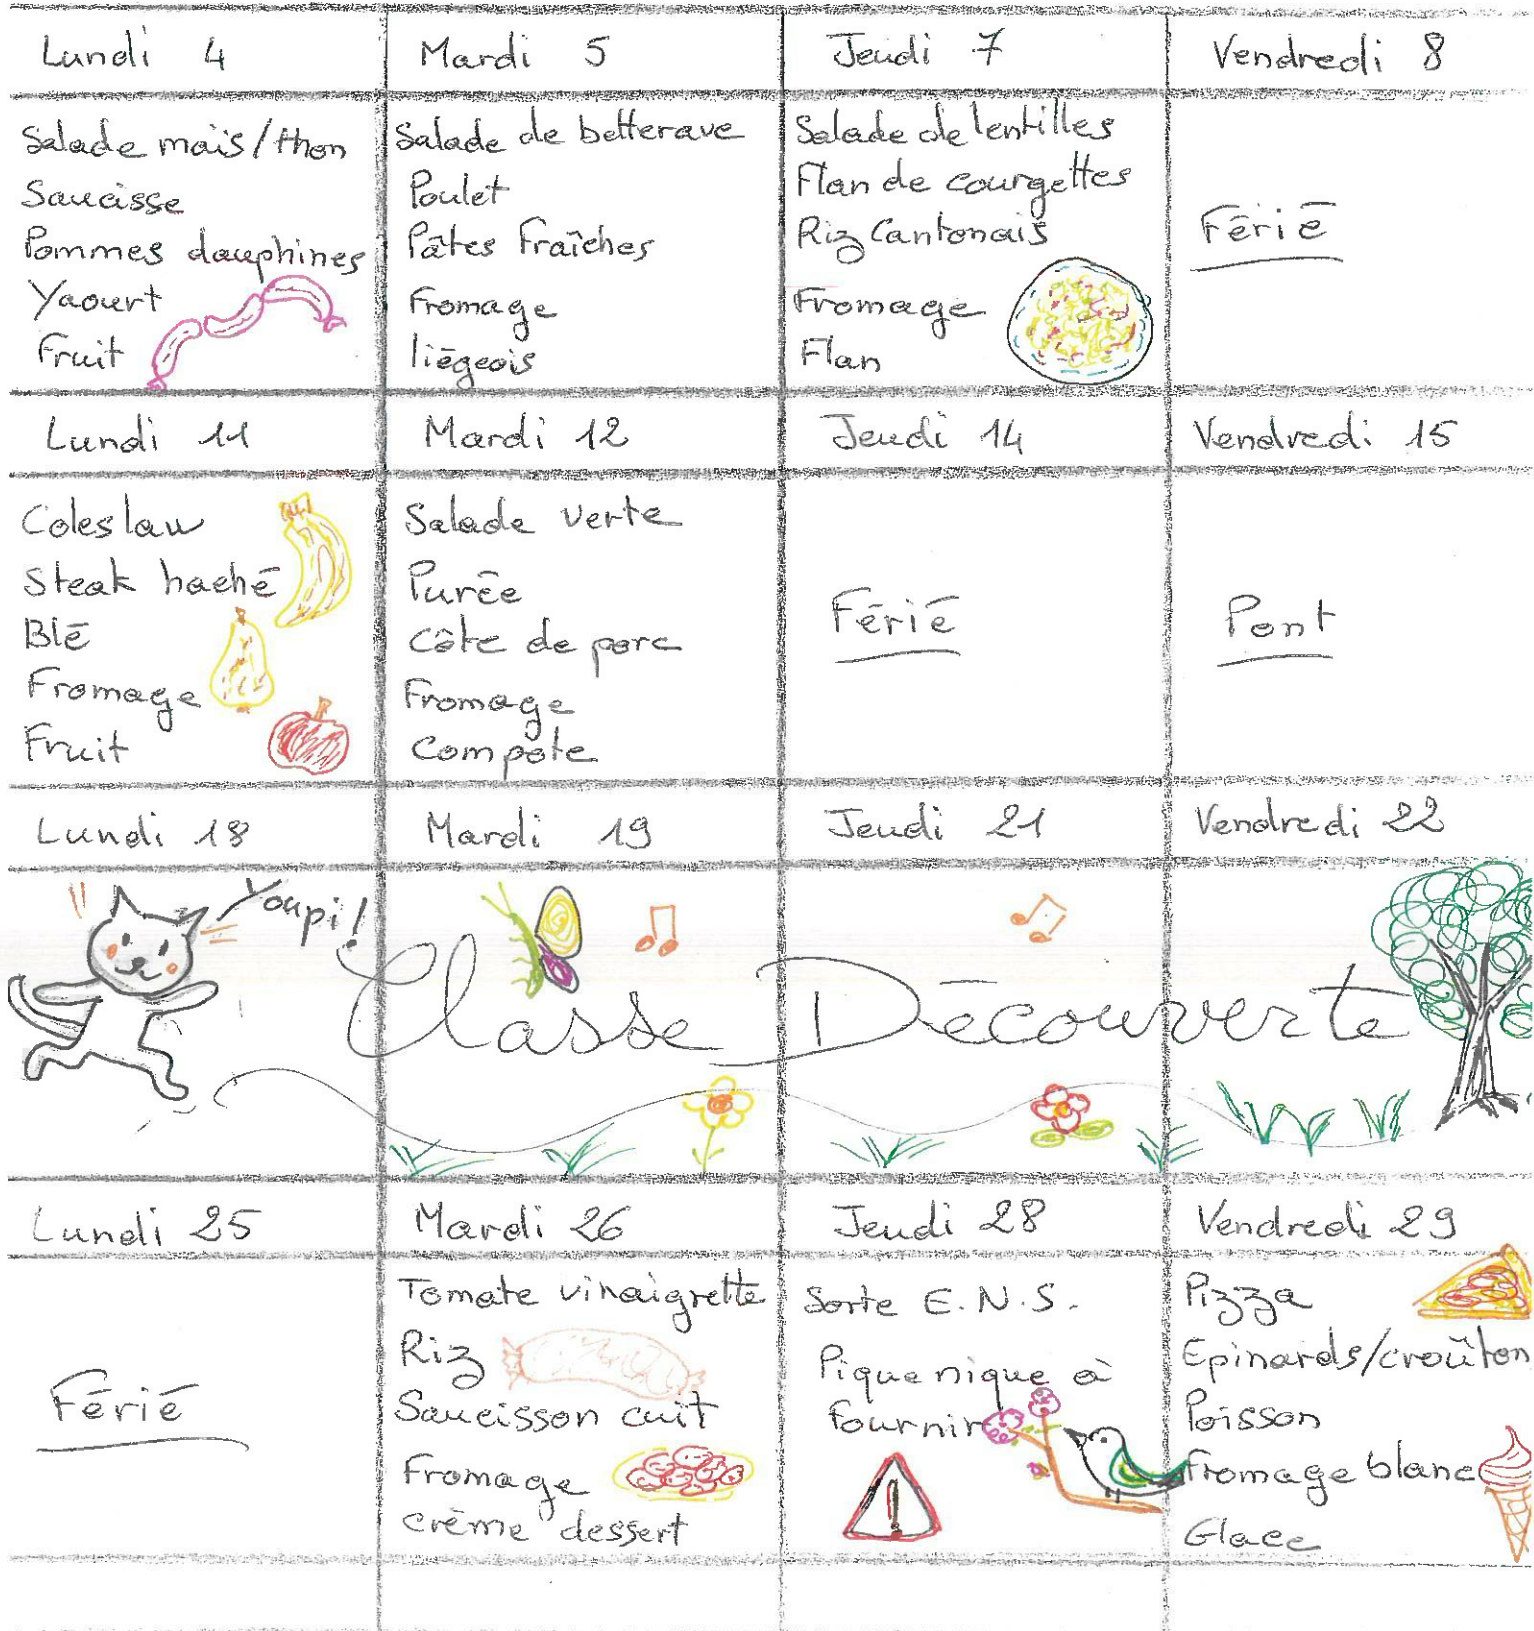 Lundi 4
Mardi 5
Jeudi 7
Vendredi 8
Salade maïs/thon
Saucisse
Pommes dauphines
Yaourt
Fruit
Salade de betterave
Poulet
Pâtes Fraîches
Fromage
liégeois
Salade de lentilles
Flan de courgettes
Riz Cantonais
Fromage
Flan
Férié
Lundi 11
Mardi 12
Jeudi 14
Vendredi 15
Coleslaw
Steak haché
Blé
Fromage
Fruit
Salade verte
Purée
Côte de porc
Fromage
Compote
Férié
Pont
Lundi 18
Mardi 19
Jeudi 21
Vendredi 22
Youpi!
Classe Découverte
Lundi 25
Mardi 26
Jeudi 28
Vendredi 29
Férié
Tomate vinaigrette
Riz
Saucisson cuit
Fromage
crème dessert
Sorte E.N.S.
Pique nique à
fournir
!
Pizza
Epinards/croûton
Poisson
Fromage blanc
Glace